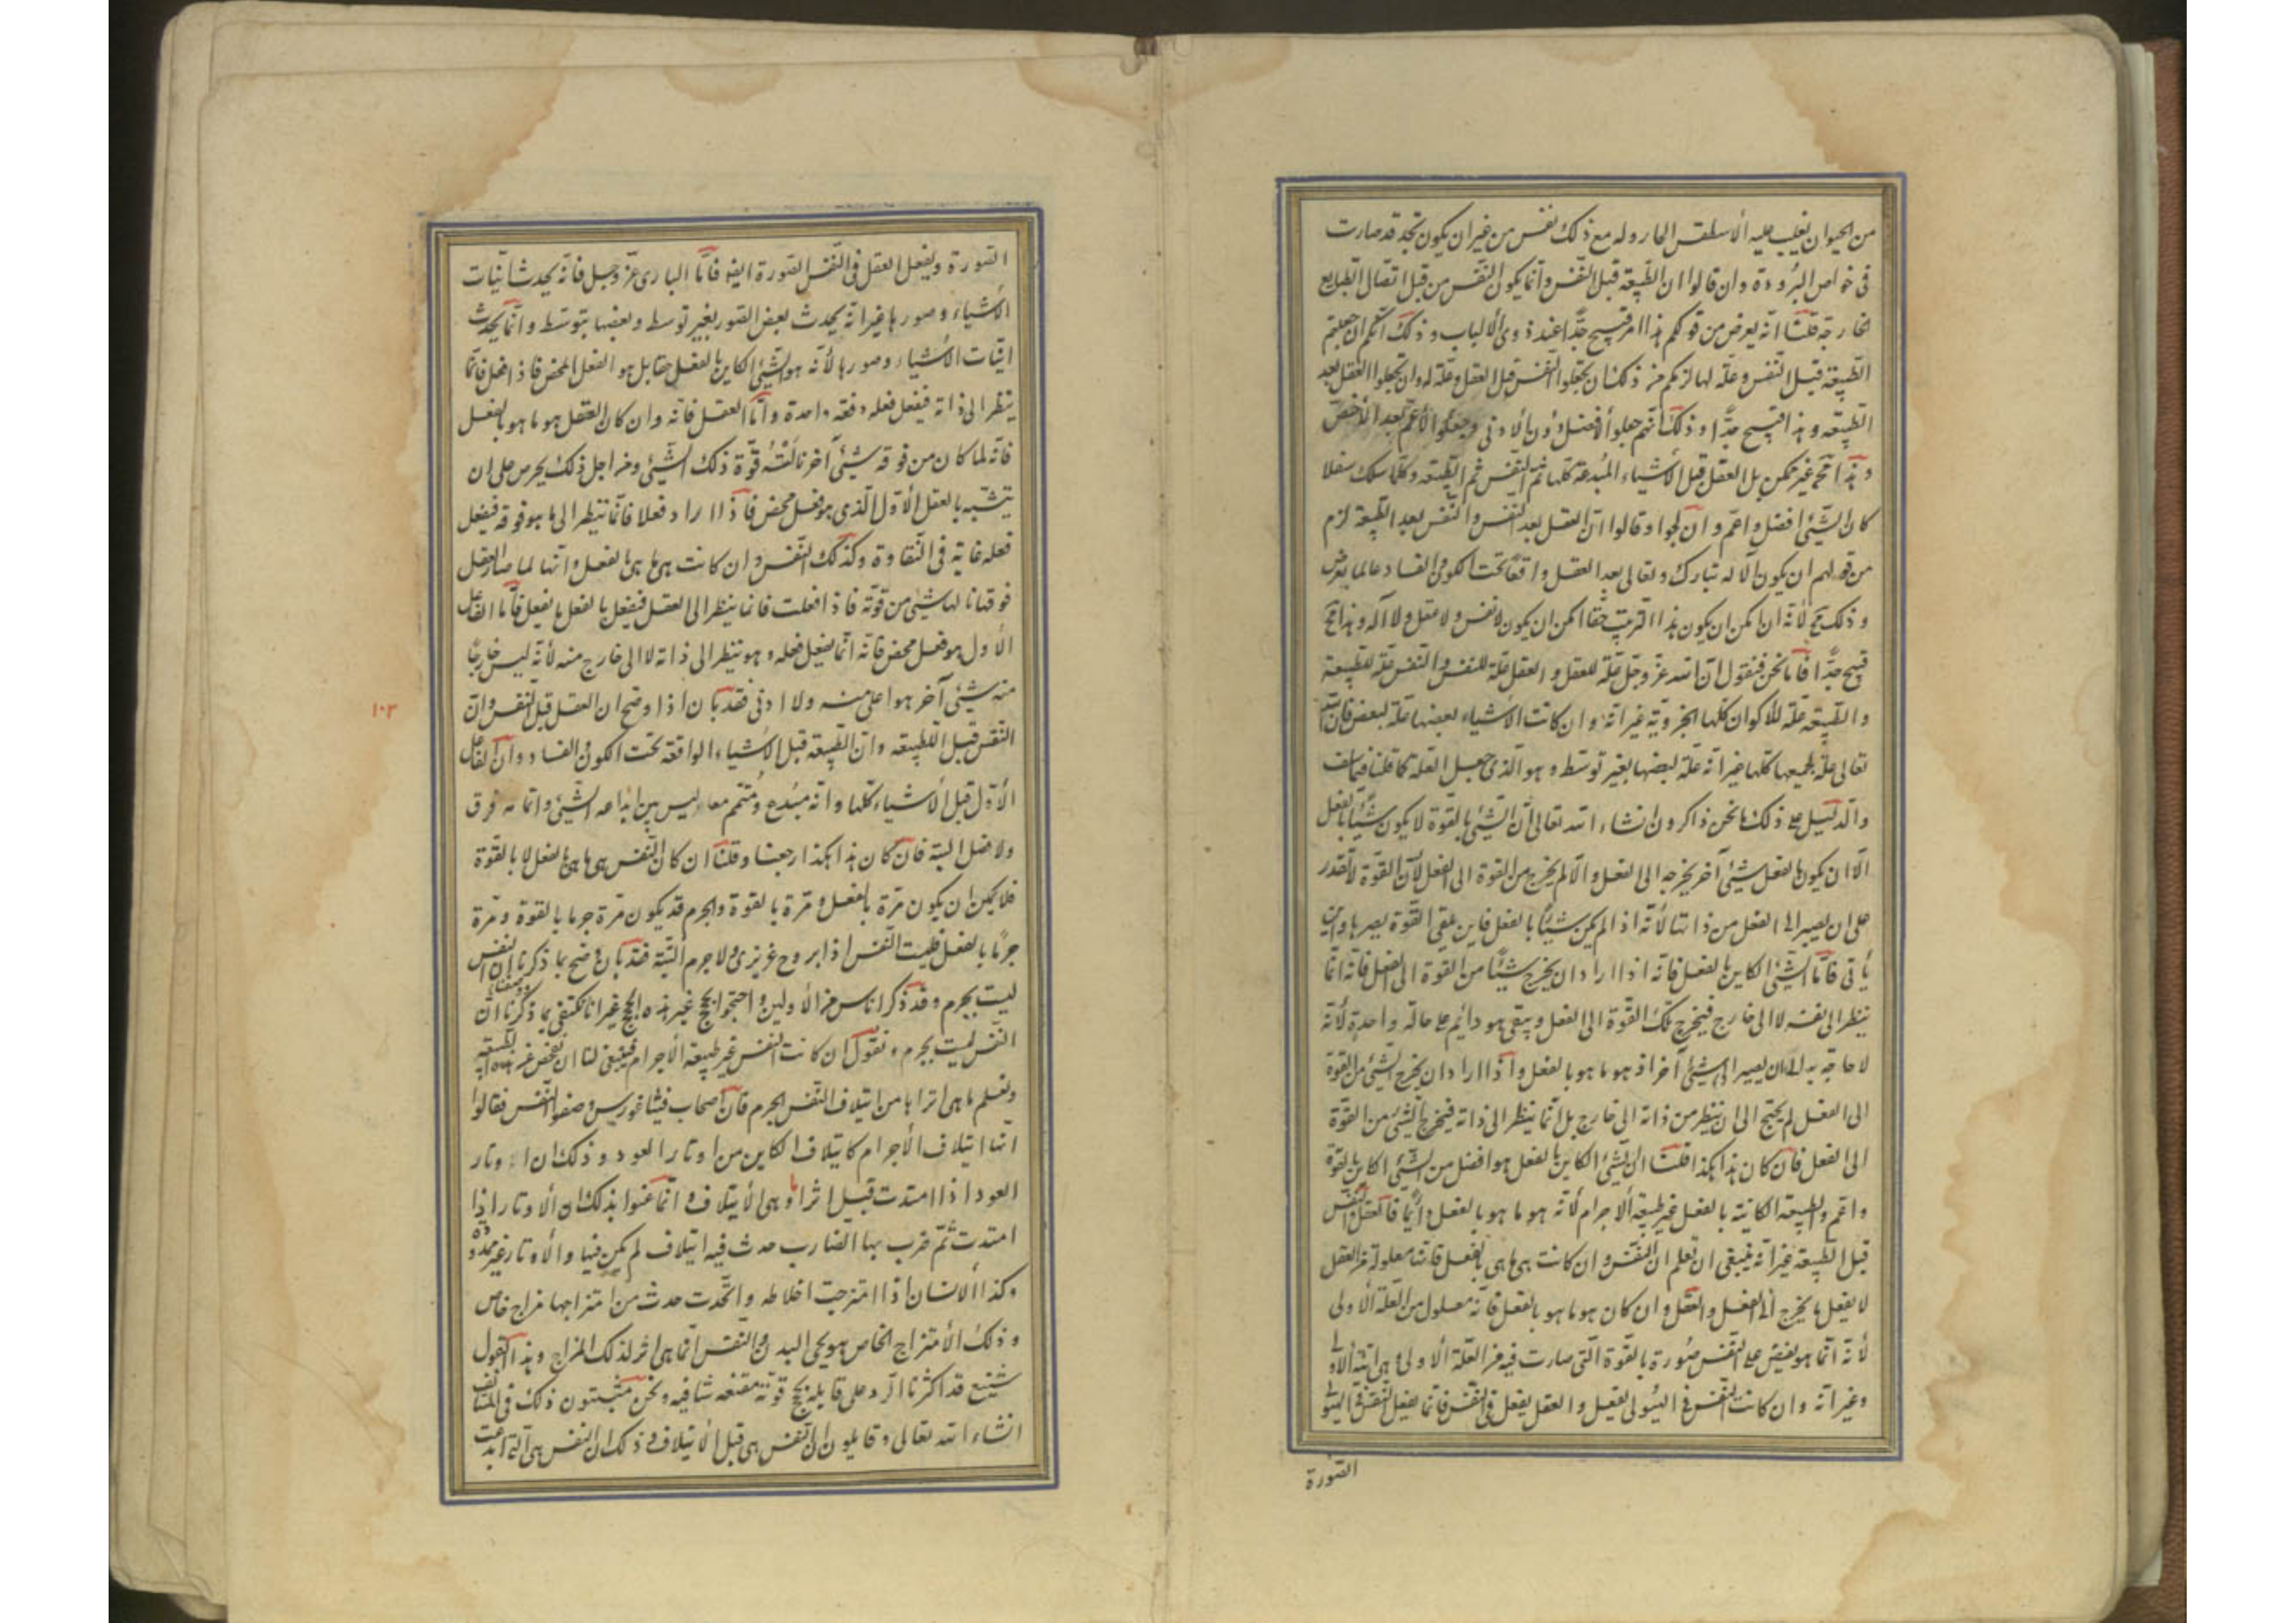 من الحيوان يغلب عليه الأسطقس الحار وله مع ذلك نفس من غير ان يكون تجد قد صارت
فى خواص البرودة وان قالوا ان الطبيعة قبل النفس وانما يكون النفس من قبل اتصال الطبايع
الخارجة قلنا انه يعرض من قولكم هذا امر قبيح جدًا عند ذوى الألباب وذلك انكم ان جعلتم
الطبيعة قبل النفس وعلة لها لزمكم من ذلك ان تجعلوا النفس قبل العقل وعلة له وان تجعلوا العقل بعد
الطبيعه وهذا قبيح جدًّا وذلك انهم جعلوا الأفضل دون الأدنى وجعلوا الأعم بعد الأخص
وهذا مح غير ممكن بل العقل قبل الأشياء المبدعة كلها ثم النفس ثم الطبيعه وكلما سلك سفلا
كان الشئ افضل واعم وان لجوا وقالوا ان العقل بعد النفس والنفس بعد الطبيعة لزم
من قولهم ان يكون الاله تبارك وتعالى بعد العقل واقعا تحت الكون والفساد عالما بعرض
وذلك مح لأنه ان امكن ان يكون هذا الترتيب حقا امكن ان يكون لا نفس ولا عقل ولا اله وهذا مح
قبيح جدًّا فأما نحن فنقول ان الله عز وجل علة للعقل والعقل علة للنفس والنفس علة للطبيعة
والطبيعه علة للأكوان كلها الجزويّة غير انه وان كانت الأشياء بعضها علة لبعض فان الله
تعالى علة لجميعها كلها غير انه علة لبعضها بغير توسط وهو الذى جعل العلة كما قلنا فيما سلف
والدليل على ذلك ما نحن ذاكرون انشاء الله تعالى ان الشئ بالقوة لا يكون شيئًا بالفعل
الا ان يكون بالفعل شئ آخر يخرجه الى الفعل والا لم يخرج من القوة الى الفعل لأن القوة لا تقدر
على ان يصير الى الفعل من ذاتها لأنه اذا لم يكن شيئًا بالفعل فاين يلقى القوة بصرها واين
يأتى فأما الشئ الكاين بالفعل فانه اذا اراد ان يخرج شيئًا من القوة الى الفعل فانه انما
ينظر الى نفسه لا الى خارج فيخرج تلك القوة الى الفعل ويبقى هو دائم على حالة واحدة لأنه
لا حاجة به الى ان يصير الى شئ آخر اذ هو ما هو بالفعل واذا اراد ان يخرج الشئ من القوة
الى الفعل لم يحتج الى ان ينظر من ذاته الى خارج بل انما ينظر الى ذاته فيخرج الشئ من القوة
الى الفعل فان كان هذا هكذا قلنا ان الشئ الكاين بالفعل هو افضل من الشئ الكاين بالقوة
واعم والطبيعة الكاينة بالفعل غير طبيعة الاجرام لأنه هو ما هو بالفعل دائمًا فالعقل والنفس
قبل الطبيعة غير انه ينبغى ان تعلم ان النفس وان كانت هى ما هى بالفعل فانها معلولة من العقل
لا يفعل ما يخرج الى الفعل والعقل وان كان هو ما هو بالفعل فانه معلول من العلة الأولى
لأنه انما هو يفيض على النفس صورة بالقوة التى صارت فيه من العلة الأولى وهى انية الأولى
وغير انه وان كانت النفس فى الهيولى تفعل والعقل يفعل فى النفس فانما يفعل النفس فى الهيولى
الصورة
الصورة ويفعل العقل فى النفس الصورة ايضا فأما البارى عز وجل فانه يحدث انيات
الأشياء وصورها غير انه يحدث بعض الصور بغير توسط وبعضها بتوسط وانما يحدث
انيات الأشياء وصورها لأنه هو الشئ الكاين بالفعل حقا بل هو الفعل المحض فاذا فعل فانما
ينظر الى ذاته فيفعل فعله دفعة واحدة واما العقل فانه وان كان العقل هو ما هو بالفعل
فانه لما كان من فوقه شئ آخر نالته قوة ذلك الشئ ومن اجل ذلك يحرص على ان
يتشبه بالعقل الأول الذى هو فعل محض فاذا اراد فعلا فانما ينظر الى ما هو فوقه فيفعل
فعله غاية فى النقاوة وكذلك النفس وان كانت هى ما هى بالفعل وانها لما صار العقل
فوقها نالها شئ من قوته فاذا فعلت فانما ينظر الى العقل فتفعل بالفعل ما يفعل فأما الفاعل
الأول هو فعل محض فانه انما يفعل فعله وهو ينظر الى ذاته لا الى خارج منه لأنه ليس خارجًا
منه شئ آخر هو اعلى منه ولا ادنى فقد بان اذا وضح ان العقل قبل النفس وان
النفس قبل الطبيعه وان الطبيعة قبل الأشياء الواقعة تحت الكون والفساد وان الفاعل
الأول قبل الأشياء كلها وانه مبدع ومتمم معا ليس بين ابداعه الشئ واتمامه فرق
ولا فصل البتة فان كان هذا هكذا رجعنا وقلنا ان كان النفس هى ما هى بالفعل لا بالقوة
فلا يمكن ان يكون مرة بالفعل ومرة بالقوة والجرم قد يكون مرة جرما بالقوة ومرة
جرمًا بالفعل فليست النفس اذا بروح غريزى ولا جرم البتة فقد بان وضح بما ذكرنا ان النفس
ليست بجرم وقد ذكر اناس من الأولين واحتجوا بحجج غير هذه الحجج غير انا نكتفى بما ذكرنا ووصفنا ان
النفس ليست بجرم ونقول ان كانت النفس غير طبيعة الأجرام فينبغى لنا ان نفحص عن هذه الطبيعة
ونعلم ما هى اتراها من ايتلاف النفس الجرم فان اصحاب فيثاغورس وصفوا النفس فقالوا
انها ايتلاف الأجرام كايتلاف الكاين من اوتار العود وذلك ان اوتار
العود اذا امتدت قبل اثرا ما وهى الأيتلاف وانما عنوا بذلك ان الأوتار اذا
امتدت ثم ضرب بها الضارب حدث فيه ايتلاف لم يكن فيها والأوتار غير ممدودة
وكذا الأنسان اذا امتزجت اخلاطه واتحدت حدث من امتزاجها مزاج خاص
وذلك الأمتزاج الخاص هو يحيى البدن والنفس انما هى اثر لذلك المزاج وهذا القول
شنيع قد اكثرنا الرد على قايليه بحجج قوية مقنعه شافيه ونحن مثبتون ذلك فى المستأنف
انشاء الله تعالى وقايلون ان النفس هى قبل الأيتلاف وذلك ان النفس هى التى ابدعت
١٠٣